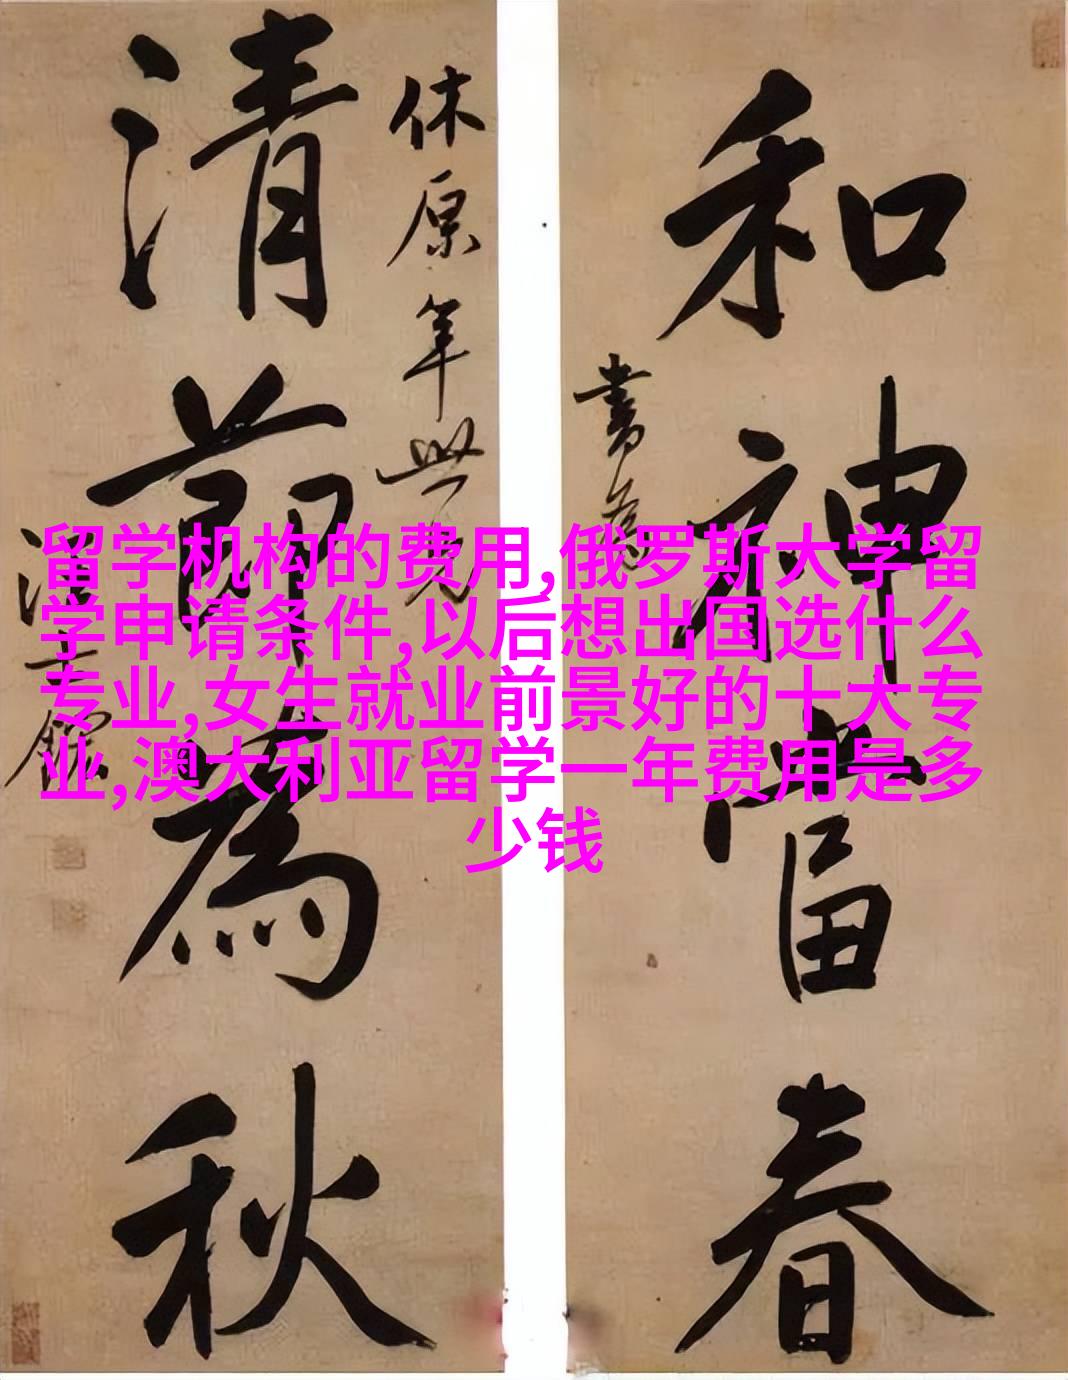 和神當春
書為
休原年世兄
清節為秋
留学机构的费用,俄罗斯大学留
学申请条件,以后想出国选什么
专业,女生就业前景好的十大专
业,澳大利亚留学一年费用是多
少钱